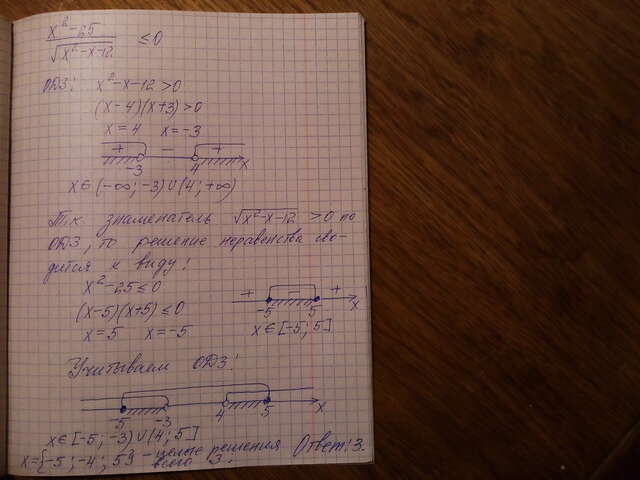 x²-25 / √x²-x-12 ≤0
ОДЗ: x²-x-12>0
(x-4)(x+3)>0
x=4 x=-3
+ - +
-3 4 x
x∈(-∞; -3)∪(4; +∞)
Т.к знаменатель √x²-x-12 >0 по
ОДЗ, то решение неравенства сво-
дится к виду:
x²-25≤0
(x-5)(x+5)≤0
x=5 x=-5
+ - +
-5 5 x
x∈[-5; 5]
Учитываем ОДЗ:
-5 -3 4 5 x
x∈[-5; -3)∪(4; 5]
x={-5; -4; 5} - целые решения
всего 3.
Ответ: 3.